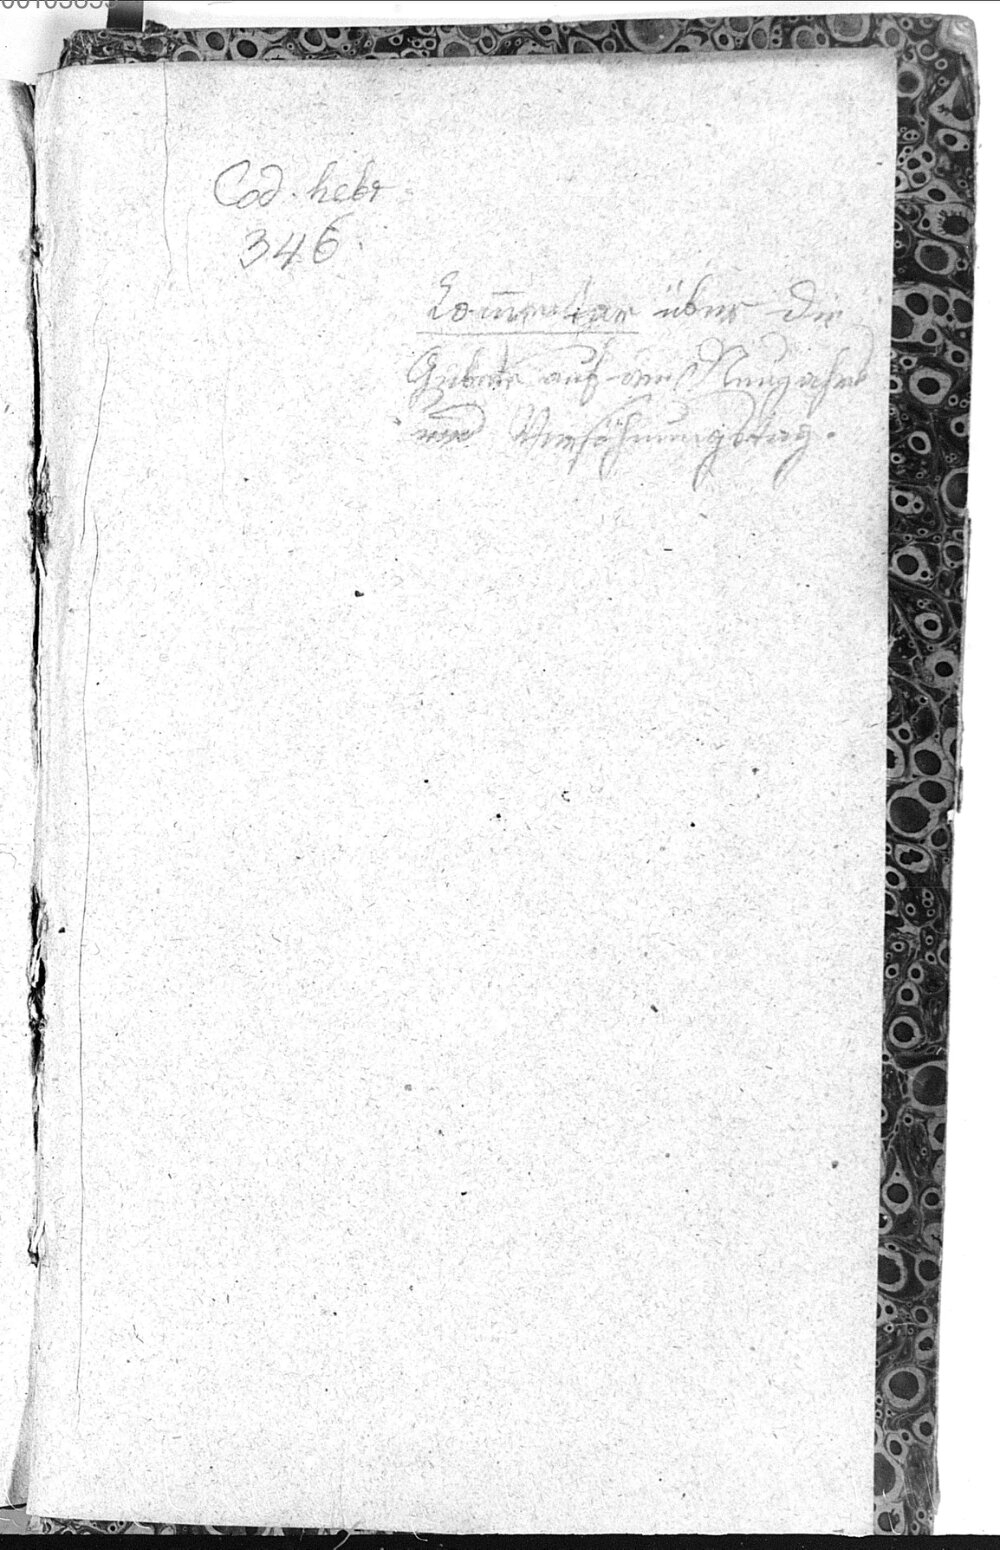 Cod. hebr
346.
Com̅entar über die
Gebete auf den Neujahrs
und Versöhnungstag.